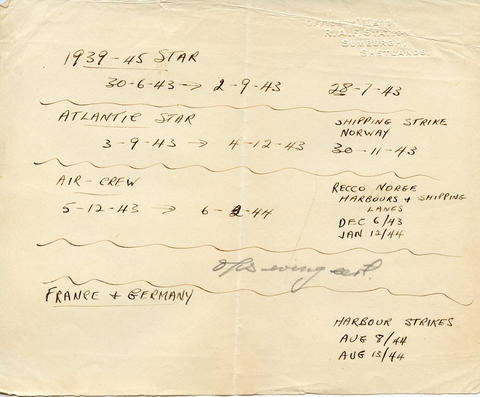 R.A.F. STATION
SUMBURGH,
SHETLANDS.
1939-45 STAR
30-6-43 → 2-9-43 28-7-43
ATLANTIC STAR SHIPPING STRIKE
NORWAY
3-9-43 → 4-12-43 30-11-43
AIR-CREW RECCO NORGE
HARBOURS & SHIPPING
LANES
5-12-43 → 6-2-44 DEC 6/43
JAN 12/44
FRANCE & GERMANY
HARBOUR STRIKES
AUG 8/44
AUG 13/44